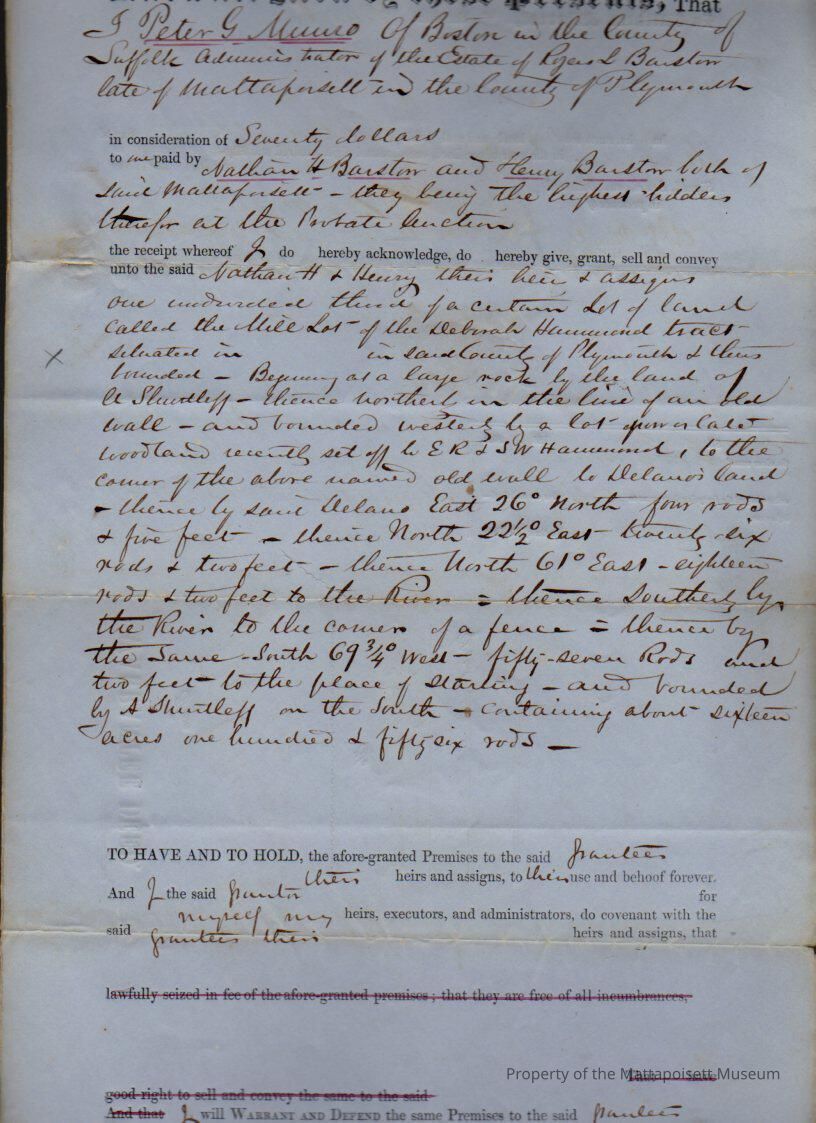 these Presents, That
I Peter G Munro Of Boston in the County of
Suffolk Administrator of the Estate of Rogers L Barstow
late of Mattapoisett in the County of Plymouth
in consideration of Seventy dollars
to me paid by Nathan H Barstow and Henry Barstow both of
said Mattapoisett - they being the highest bidders
therefor at the Probate Auction
the receipt whereof I do hereby acknowledge, do hereby give, grant, sell and convey
unto the said Nathan H & Henry their heirs & assigns
one undivided third of a certain Lot of land
called the Mill Lot - of the Deborah Hammond tract -
situated in in said County of Plymouth & thus
bounded - Beginning at a large rock by the land of
A Shurtleff - thence northerly in the line of an old
wall - and bounded westerly by a lot
woodland recently set off to E R & S W Hammond, to the
corner of the above named old wall to Delano's land
- thence by said Delano East 26° North four rods
& five feet - thence North 22½° East - twenty-six
rods & two feet - thence North 61° East - eighteen
rods & two feet to the River = thence Southerly by
the River to the corner of a fence = thence by
the Same - South 69¾° West - fifty-seven Rods and
two feet to the place of starting - and bounded
by A Shurtleff on the South - containing about sixteen
acres one hundred & fifty six rods -
TO HAVE AND TO HOLD, the afore-granted Premises to the said grantees
their heirs and assigns, to their use and behoof forever.
And I the said grantor for
myself my heirs, executors, and administrators, do covenant with the
said grantees their heirs and assigns, that
lawfully seized in fee of the afore-granted premises; that they are free of all incumbrances,
Property of the Mattapoisett Museum
That have
good right to sell and convey the same to the said
And that I will WARRANT AND DEFEND the same Premises to the said grantees